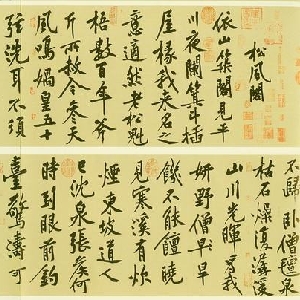 松風閣
依山築閣見平
川夜闌箕斗插
屋椽我來名之
意適然老松魁
梧數百年斧
斤所赦今參天
風鳴媧皇五十
弦洗耳不須
不歸臥僧氈泉
枯石燥復潺湲
山川光暉為我
妍野僧早旱
饑不能饘曉
見寒溪有炊
煙東坡道人
已沈泉張侯何
時到眼前釣
臺驚濤可